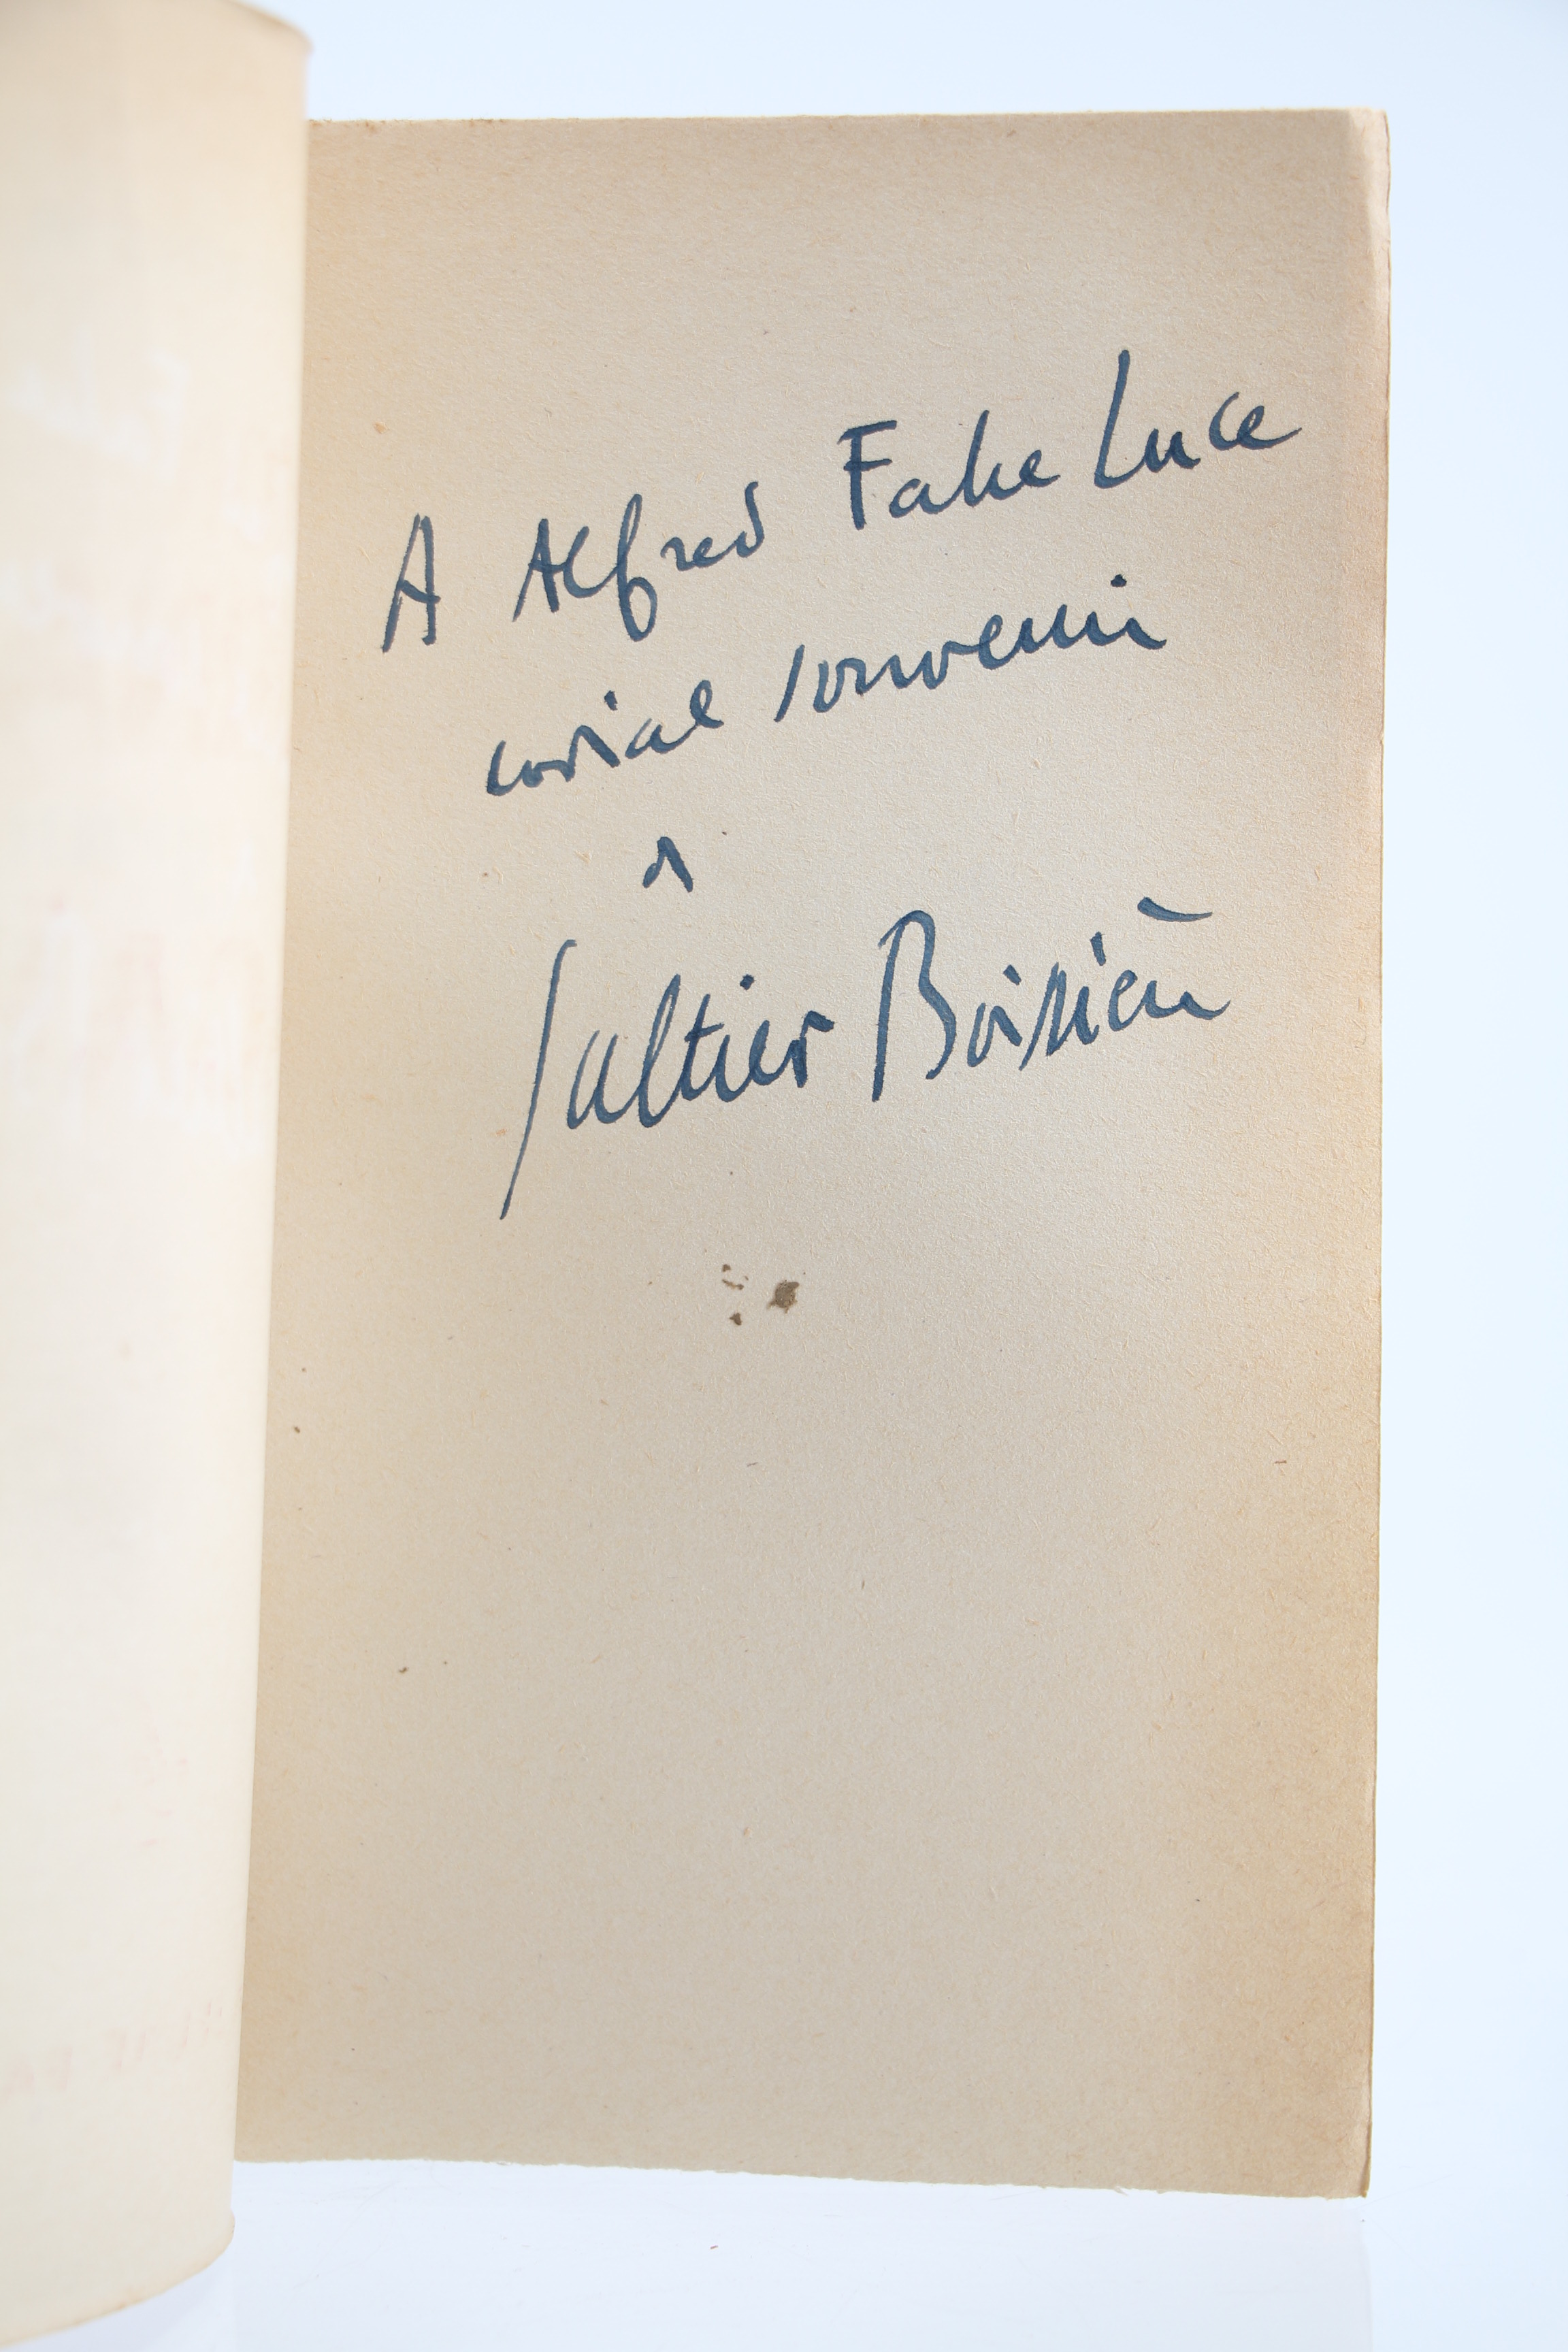 A Alfred Fabre Luce
cordial souvenir
de
Galtier Boissière